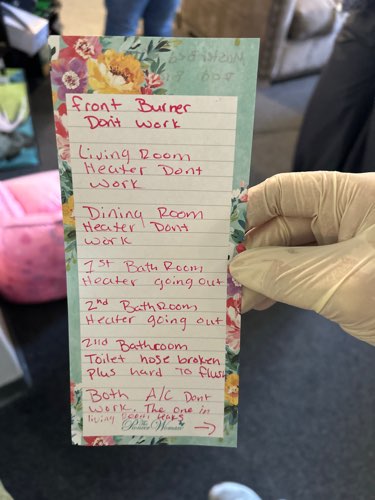 front Burner
Dont work
Living Room
Heater Dont
work
Dining Room
Heater Dont
work
1st BathRoom
Heater going out
2nd BathRoom
Heater going out
2nd Bathroom
Toilet hose broken
Plus hard To flush
Both A/C Dont
work. The one in
living room leaks
The Pioneer Woman